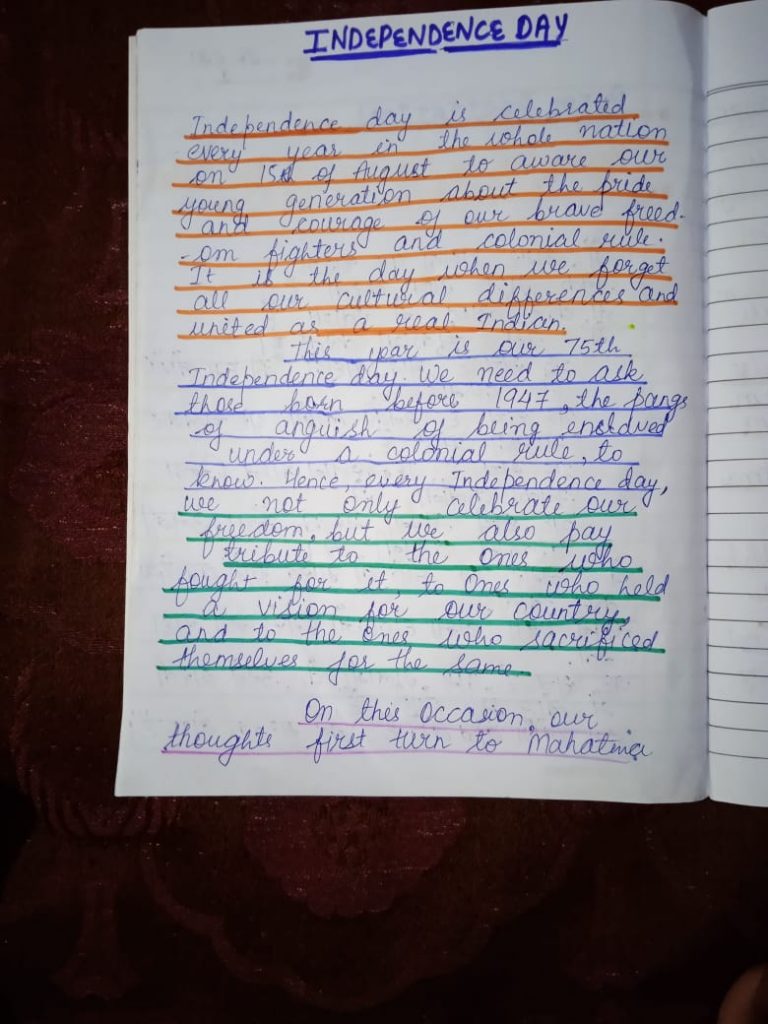 INDEPENDENCE DAY
Independence day is celebrated
every year in the whole nation
on 15th of August to aware our
young generation about the pride
and courage of our brave freed-
-om fighters and colonial rule.
It is the day when we forget
all our cultural differences and
united as a real Indian.
This year is our 75th
Independence day. We need to ask
those born before 1947, the pangs
of anguish of being enslaved
under a colonial rule, to
know. Hence, every Independence day,
we not only celebrate our
freedom, but we also pay
tribute to the ones who
fought for it, to ones who held
a vision for our country,
and to the ones who sacrificed
themselves for the same
On this occasion, our
thoughts first turn to Mahatma